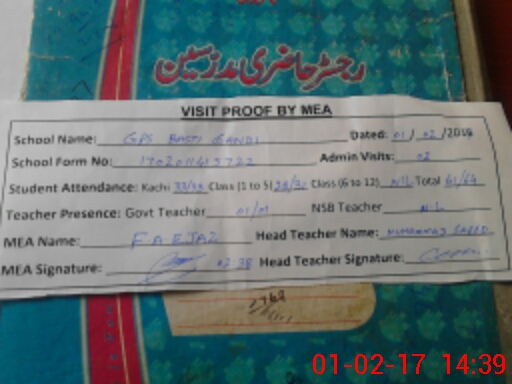 رجسٹر حاضری مدرسین
VISIT PROOF BY MEA
School Name: GPS BASTI GANDI Dated: 01/02/2019
School Form No: Admin Visits: 02
Student Attendance: Kachi Class (1 to 5) Class (6 to 12) NIL Total 61/64
Teacher Presence: Govt Teacher 01/01 NSB Teacher NIL
MEA Name: F.A EJAZ Head Teacher Name: MUHAMMAD SAEED
MEA Signature: 02:38 Head Teacher Signature:
01-02-17 14:39